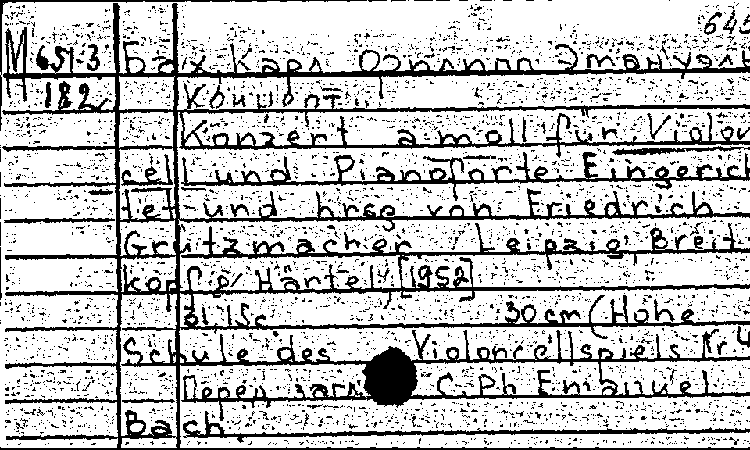 645
М 651-3 Бах, Карл Филипп Эмануэль
182 Концерты
Konzert a moll für Violon
cell und Pianoforte. Eingerich
tet und hrsg von Friedrich
Grützmacher Leipzig, Breit
kopf & Härtel, [1952]
31, 15 c 30 cm (Hohe
Schule des Violoncellspiels Nr 4
Перед загл. C. Ph Emanuel
Bach.